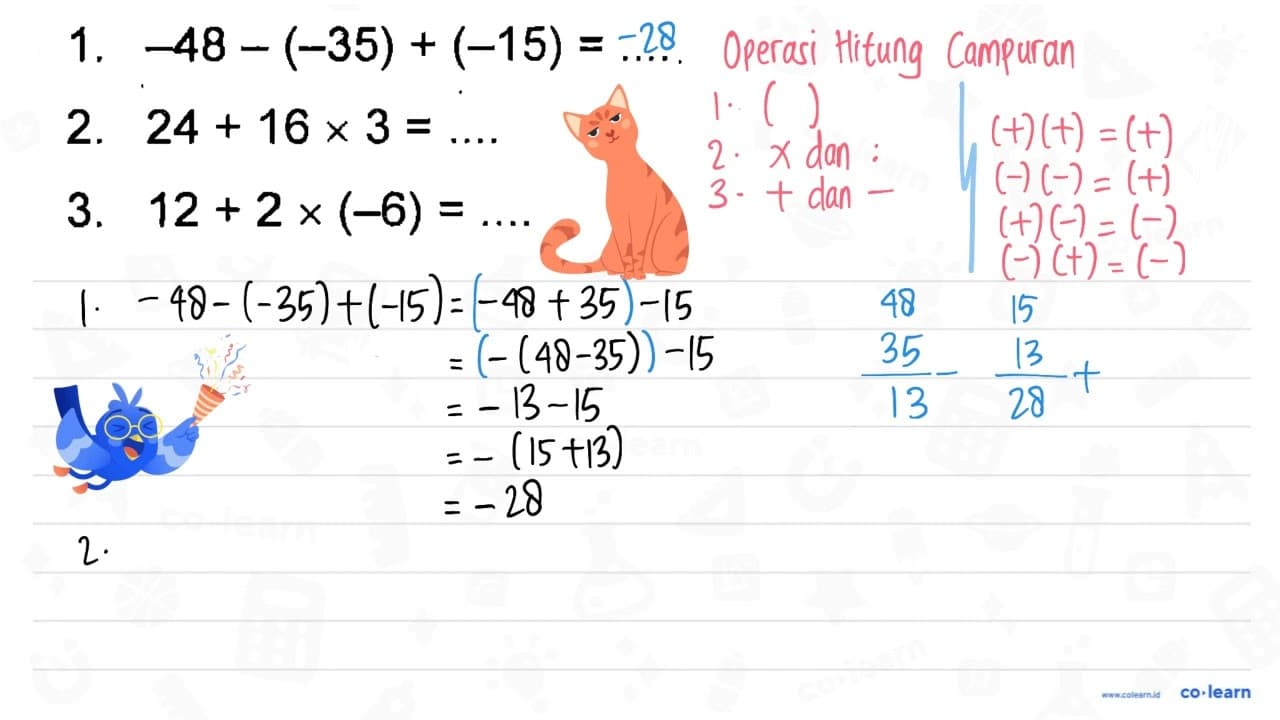 1. –48 – (–35) + (–15) = .... -28
2. 24 + 16 × 3 = ....
3. 12 + 2 × (–6) = ....
Operasi Hitung Campuran
1. ( )
2. x dan :
3. + dan -
(+)(+) = (+)
(-)(-) = (+)
(+)(-) = (-)
(-)(+) = (-)
1. -48-(-35)+(-15) = (-48+35)-15
= (-(48-35))-15
= -13-15
= -(15+13)
= -28
48
35 -
13
15
13 +
28
2.
www.colearn.id co·learn